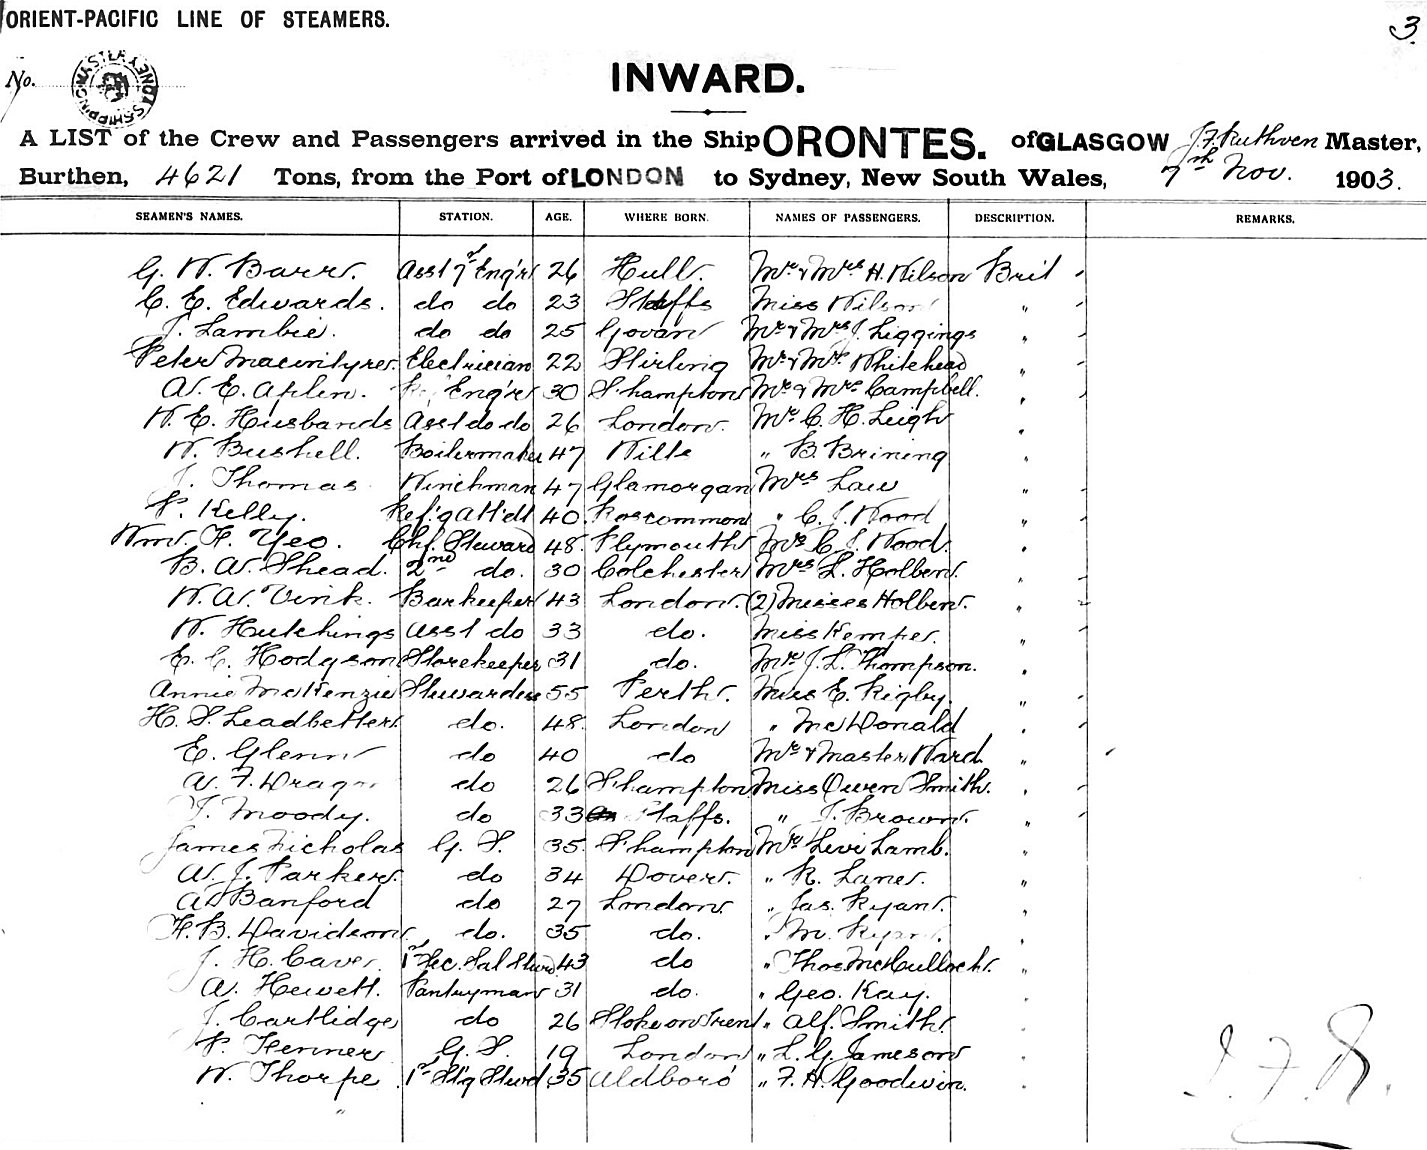 ORIENT-PACIFIC LINE OF STEAMERS.
3.
No.
INWARD.
A LIST of the Crew and Passengers arrived in the Ship ORONTES. of GLASGOW J. F. Ruthven Master,
Burthen, 4621 Tons, from the Port of LONDON to Sydney, New South Wales, 7th Nov. 1903.
SEAMEN'S NAMES. STATION. AGE. WHERE BORN. NAMES OF PASSENGERS. DESCRIPTION. REMARKS.
G. W. Barr. Asst 7th Eng'r 26 Hull. Mr & Mrs H. Wilson Brit
C. E. Edwards. do do 23 Staffs Miss Wilson "
J. Lambie. do do 25 Govan Mr & Mrs J. Liggings "
Peter Macintyre. Electrician 22 Stirling Mr & Mrs Whitehead "
A. E. Aplin. Eng'r 30 S'hampton Mr & Mrs Campbell. "
W. E. Husbands Asst do do 26 London. Mr C. H. Leigh "
W. Bushell. Boilermaker 47 Wilts " B. Brining "
J. Thomas Winchman 47 Glamorgan Mrs Law "
P. Kelly. Ref'g Att'dt 40 Roscommon " C. J. Wood "
Wm. F. Yeo. Chf. Steward 48 Plymouth Mr C. J. Wood. "
B. W. Shead. 2nd do. 30 Colchester Mrs L. Holben. "
W. A. Vink. Barkeeper 43 London. (2) Misses Holben. "
W. Hutchings Asst do 33 do. Miss Kemper. "
E. C. Hodgson Storekeeper 31 do. Mr J. L. Thompson. "
Annie McKenzie Stewardess 55 Perth. Miss E. Rigby. "
H. S. Leadbetter. do. 48 London " McDonald "
E. Glenn do 40 do Mr & Master Ward. "
A. F. do 26 S'hampton Miss Owen Smith. "
T. Moody. do 33 Staffs. " J. Brown. "
James Nicholas G. S. 35 S'hampton Mr Levi Lamb. "
A. J. Parker. do 34 Dover. " R. Lane. "
A Banford do 27 London. " Jas. Ryan. "
F. B. Davidson do. 35 do. " M. Ryan. "
J. H. Caver 1st Sec. Sal Stwd 43 do " Thos McCulloch. "
A. Hewett. Pantryman 31 do. " Geo. Kay. "
J. Cartlidge do 26 Stoke on Trent " Alf. Smith. "
P. Fenner G. S. 19 London " L. G. Jameson "
W. Thorpe 1st Stg Stwd 35 Aldboro' " F. H. Goodwin. "
J. F. R.